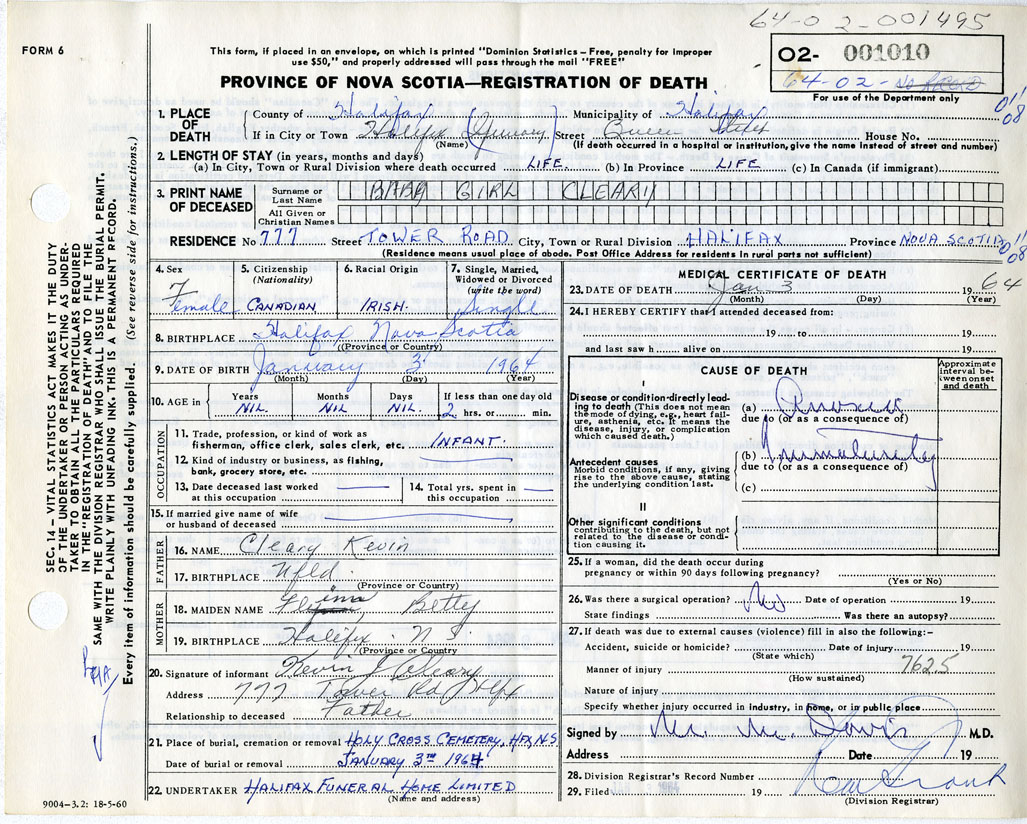 64-02-001495
FORM 6
This form, if placed in an envelope, on which is printed "Dominion Statistics – Free, penalty for improper
use $50," and properly addressed will pass through the mail "FREE"
02- 001010
64-02-
For use of the Department only
PROVINCE OF NOVA SCOTIA—REGISTRATION OF DEATH
011
08
1. PLACE OF DEATH
County of Halifax Municipality of Halifax
If in City or Town Halifax Street Queen House No.
(Name) (If death occurred in a hospital or institution, give the name instead of street and number)
2. LENGTH OF STAY (in years, months and days)
(a) In City, Town or Rural Division where death occurred LIFE. (b) In Province LIFE. (c) In Canada (if immigrant)
3. PRINT NAME OF DECEASED
Surname or Last Name BABY GIRL CLEARY
All Given or Christian Names
RESIDENCE No 777 Street TOWER ROAD City, Town or Rural Division HALIFAX Province NOVA SCOTIA
(Residence means usual place of abode. Post Office Address for residents in rural parts not sufficient)
011
08
4. Sex Female
5. Citizenship (Nationality) CANADIAN
6. Racial Origin IRISH.
7. Single, Married, Widowed or Divorced (write the word) Single
8. BIRTHPLACE Halifax Nova Scotia
(Province or Country)
9. DATE OF BIRTH January 3 1964
(Month) (Day) (Year)
10. AGE in Years NIL. Months NIL. Days NIL. If less than one day old 2 hrs. or min.
OCCUPATION
11. Trade, profession, or kind of work as
fisherman, office clerk, sales clerk, etc. INFANT.
12. Kind of industry or business, as fishing,
bank, grocery store, etc.
13. Date deceased last worked
at this occupation
14. Total yrs. spent in
this occupation
15. If married give name of wife
or husband of deceased
FATHER
16. NAME Cleary Kevin
17. BIRTHPLACE Nfld.
(Province or Country)
MOTHER
18. MAIDEN NAME Betty
19. BIRTHPLACE Halifax. N S.
(Province or Country)
20. Signature of informant Kevin J Cleary
Address 777 Tower Rd Hlfx
Relationship to deceased Father
21. Place of burial, cremation or removal HOLY CROSS CEMETERY, HFX, N.S
Date of burial or removal JANUARY 3RD 1964
22. UNDERTAKER HALIFAX FUNERAL HOME LIMITED
(Name and address)
MEDICAL CERTIFICATE OF DEATH
23. DATE OF DEATH Jan 3 1964
(Month) (Day) (Year)
24. I HEREBY CERTIFY that I attended deceased from:
19 to 19
and last saw h alive on 19
CAUSE OF DEATH
Approximate interval between onset and death
I
Disease or condition directly leading
to death (This does not mean
the mode of dying, e.g., heart failure,
asthenia, etc. It means the
disease, injury, or complication
which caused death.)
(a) Anoxia
due to (or as a consequence of)
Antecedent causes
Morbid conditions, if any, giving
rise to the above cause, stating
the underlying condition last.
(b) Prematurity
due to (or as a consequence of)
(c)
II
Other significant conditions
contributing to the death, but not
related to the disease or condition
causing it.
25. If a woman, did the death occur during
pregnancy or within 90 days following pregnancy?
(Yes or No)
26. Was there a surgical operation? No Date of operation 19
State findings Was there an autopsy?
27. If death was due to external causes (violence) fill in also the following:–
Accident, suicide or homicide? Date of injury 19
(State which)
Manner of injury 7625
(How sustained)
Nature of injury
Specify whether injury occurred in industry, in home, or in public place
Signed by M. M. Davis M.D.
Address Date 19
28. Division Registrar's Record Number
29. Filed 19
(Division Registrar)
SEC. 14 – VITAL STATISTICS ACT MAKES IT THE DUTY
OF THE UNDERTAKER OR PERSON ACTING AS UNDERTAKER
TO OBTAIN ALL THE PARTICULARS REQUIRED
IN THE "REGISTRATION OF DEATH" AND TO FILE THE
SAME WITH THE DIVISION REGISTRAR WHO SHALL ISSUE THE BURIAL PERMIT.
WRITE PLAINLY WITH UNFADING INK. THIS IS A PERMANENT RECORD.
Every item of information should be carefully supplied. (See reverse side for instructions.)
9004–3.2: 18-5-60